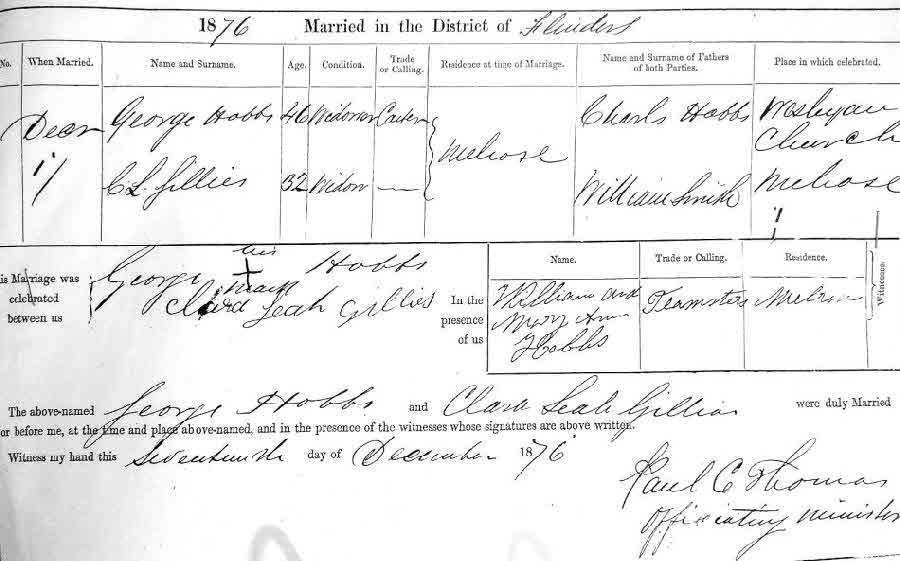 1876 Married in the District of Flinders
No. When Married. Name and Surname. Age. Condition. Trade or Calling. Residence at time of Marriage. Name and Surname of Fathers of both Parties. Place in which celebrated.
Decr 17 George Hobbs 46 Widower Melrose Charls Hobbs Wesleyan Church Melrose
C L Gillies 32 Widow — William Smith
is Marriage was celebrated between us
George his + mark Hobbs
Clara Leah Gillies
In the presence of us
Name. Trade or Calling. Residence. Witnesses.
William and Mary Ann Hobbs Teamsters Melrose
The above-named George Hobbs and Clara Leah Gillies were duly Married
or before me, at the time and place above-named, and in the presence of the witnesses whose signatures are above written.
Witness my hand this Seventeenth day of December 1876
Paul C Thomas
Officiating Minister